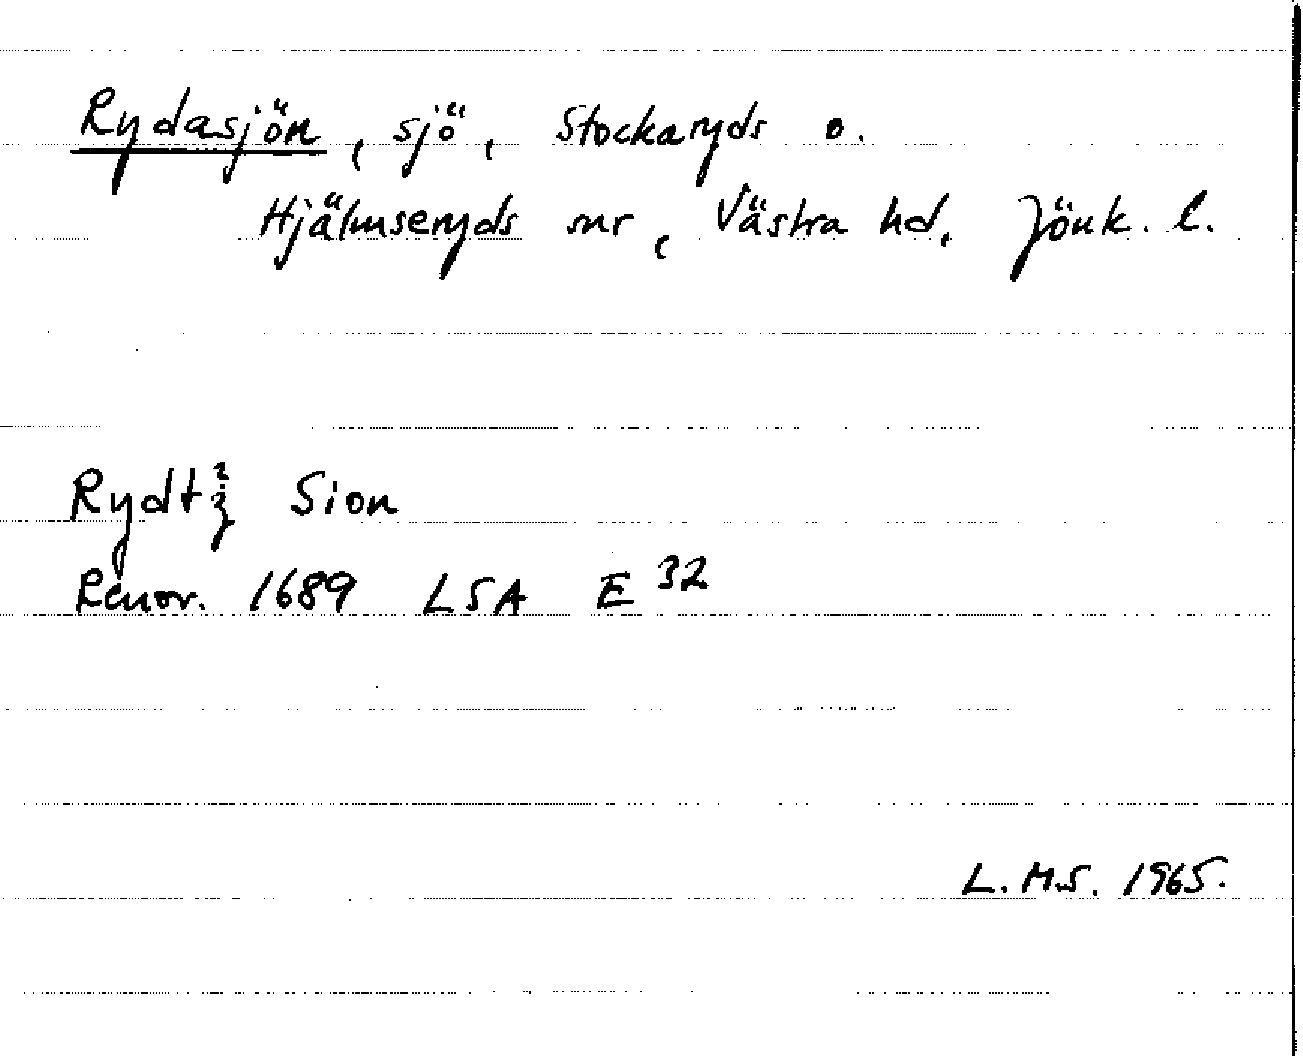 Rydasjön, sjö, Stockaryds o.
Hjälmseryds snr, Västra hd. Jönk. l.
Rydtz Sion
Renov. 1689 LSA E 32
L.M.S. 1965.